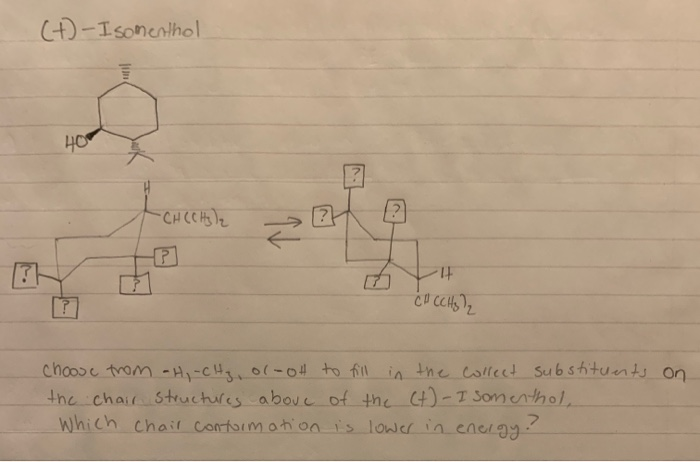 (+)-Isomenthol
HO
H
CH(CH3)2
?
?
?
?
?
?
?
?
H
CH(CH3)2
choose from -H, -CH3, or -OH to fill in the correct substituents on
the chair structures above of the (+)-Isomenthol.
Which chair conformation is lower in energy?